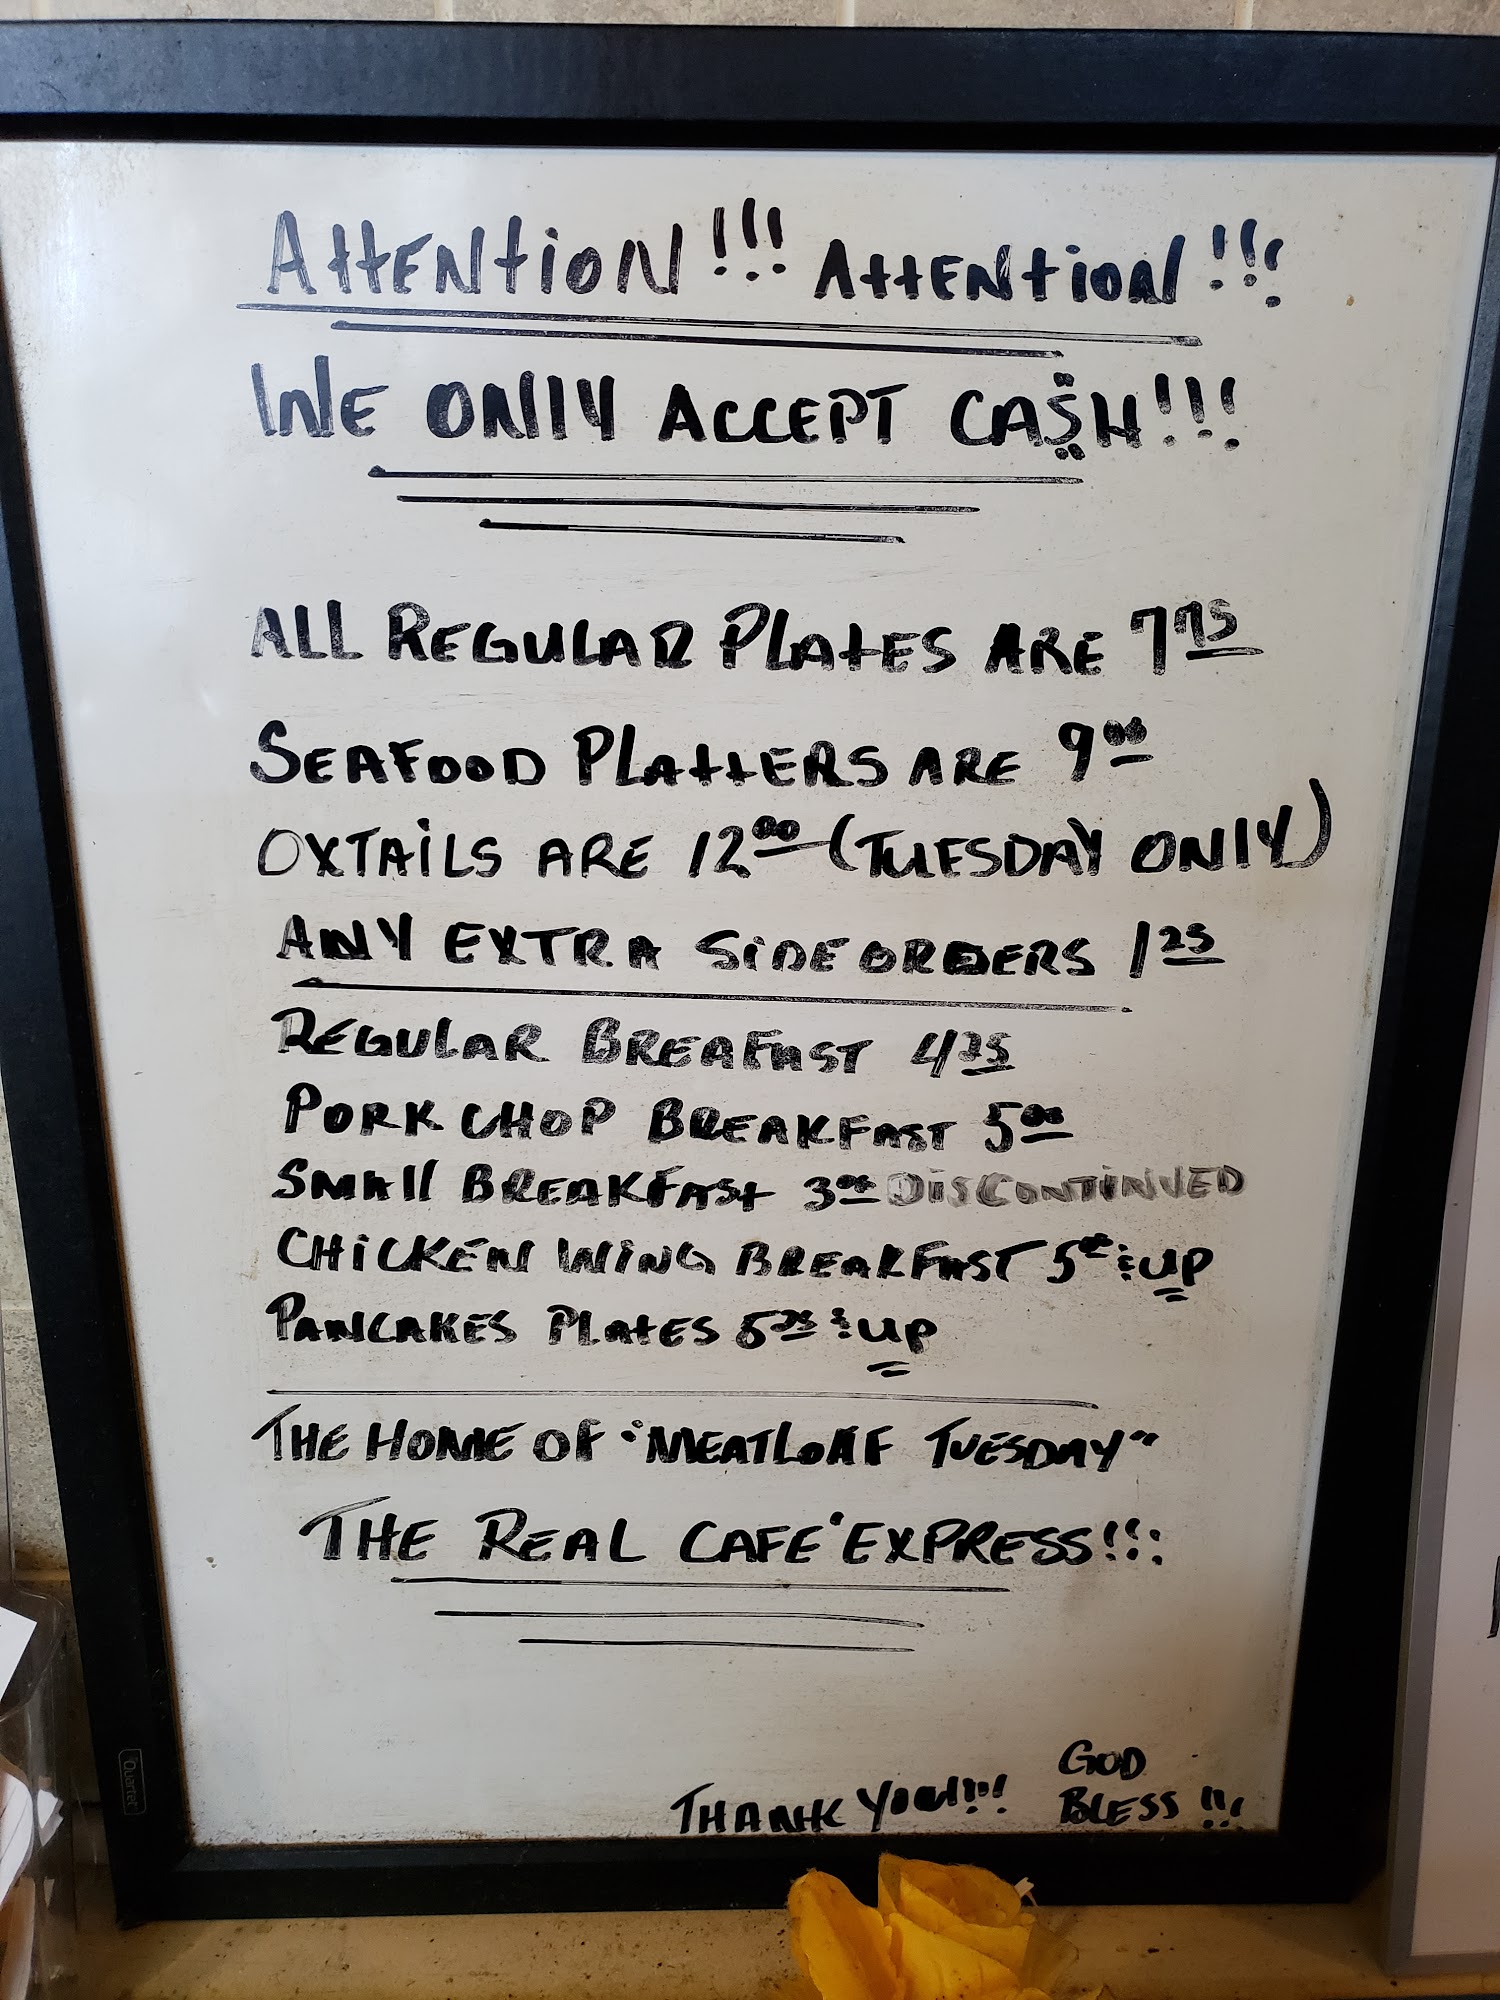 Attention!!! Attention!!!
We only accept ca$h!!!
All Regular Plates are 7.75
Seafood Platters are 9.00
Oxtails are 12.00 (Tuesday only)
Any extra side orders 1.25
Regular Breafast 4.25
Pork chop Breakfast 5.00
Small Breakfast 3.00 Discontinued
Chicken wing Breakfast 5.00 & up
Pancakes Plates 5.25 & up
The Home of "Meatloaf Tuesday"
The Real Cafe' Express!!!
Thank you!!!! God
Bless!!!
Quartet